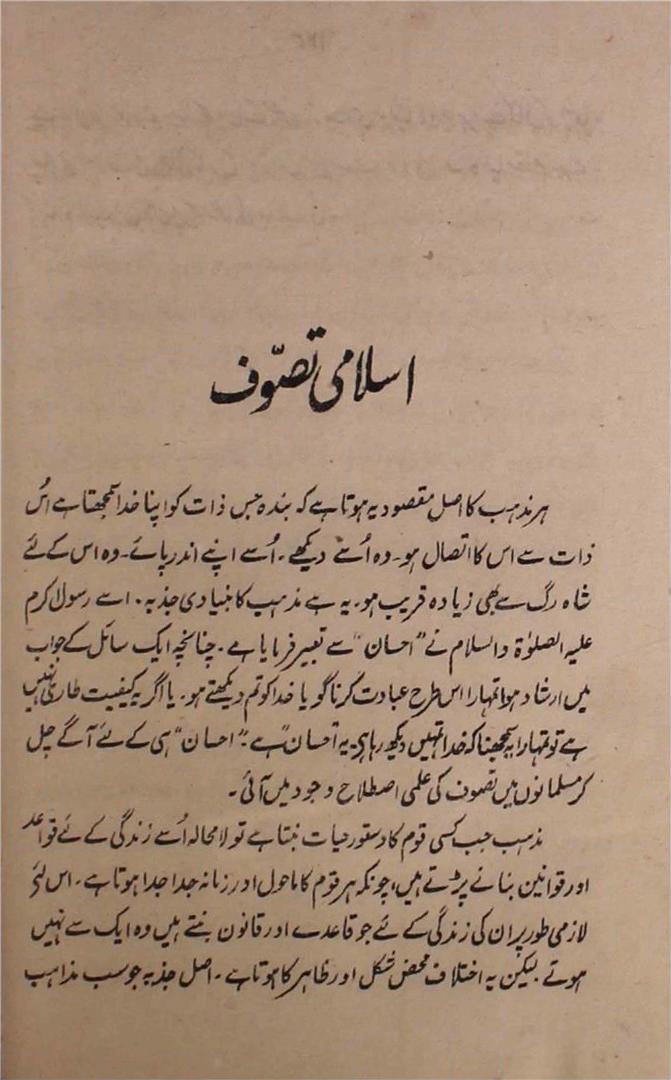 اسلامی تصوّف
ہر مذہب کا اصل مقصود یہ ہوتا ہے کہ بندہ جس ذات کو اپنا خدا سمجھتا ہے اُس
ذات سے اس کا اتصال ہو۔ وہ اُسے دیکھے۔ اُسے اپنے اندر پائے۔ وہ اس کے لئے
شاہ رگ سے بھی زیادہ قریب ہو۔ یہ ہے مذہب کا بنیادی جذبہ۔ اسے رسول اکرم
علیہ الصلوٰۃ والسلام نے "احسان" سے تعبیر فرمایا ہے۔ چنانچہ ایک سائل کے جواب
میں ارشاد ہوا تمہارا اس طرح عبادت کرنا گویا خدا کو تم دیکھتے ہو۔ یا اگر یہ کیفیت طاری نہیں
ہے تو تمہارا یہ سمجھنا کہ خدا تمہیں دیکھ رہا ہے۔ یہ "احسان" ہے۔ "احسان" ہی کے لئے آگے چل
کر مسلمانوں میں تصوف کی علمی اصطلاح وجود میں آئی۔
مذہب جب کسی قوم کا دستور حیات بنتا ہے تو لا محالہ اُسے زندگی کے لئے قواعد
اور قوانین بنانے پڑتے ہیں، چونکہ ہر قوم کا ماحول اور زمانہ جدا جدا ہوتا ہے۔ اس لئے
لازمی طور پر ان کی زندگی کے لئے جو قاعدے اور قانون بنتے ہیں وہ ایک سے نہیں
ہوتے لیکن یہ اختلاف محض شکل اور ظاہر کا ہوتا ہے۔ اصل جذبہ جو سب مذاہب